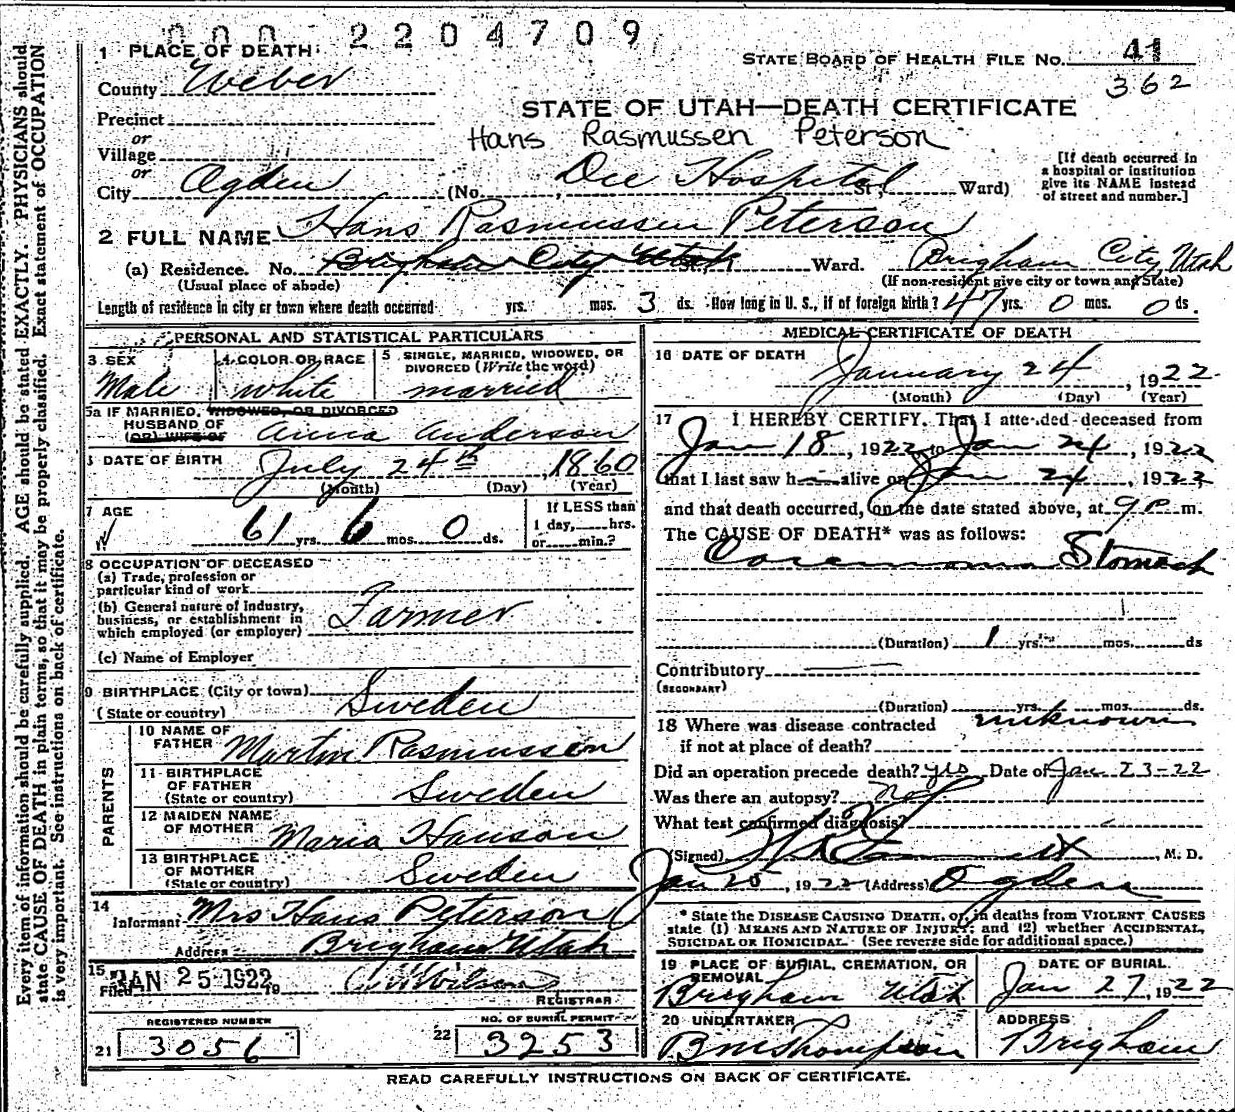 000 2204709
1 PLACE OF DEATH
STATE BOARD OF HEALTH FILE NO. 41
362
County Weber
STATE OF UTAH—DEATH CERTIFICATE
Precinct
Hans Rasmussen Peterson
or
Village
or
City Ogden (No. Dee Hospital St.; Ward)
[If death occurred in
a hospital or institution
give its NAME instead
of street and number.]
2 FULL NAME Hans Rasmussen Peterson
(a) Residence. No. Brigham City Utah St. Ward. Brigham City, Utah
(Usual place of abode) (If non-resident give city or town and State)
Length of residence in city or town where death occurred yrs. mos. 3 ds. How long in U. S., if of foreign birth? 47 yrs. 0 mos. 0 ds.
PERSONAL AND STATISTICAL PARTICULARS
3 SEX
Male
4 COLOR OR RACE
white
5 SINGLE, MARRIED, WIDOWED, OR
DIVORCED (Write the word)
married
5a IF MARRIED, WIDOWED, OR DIVORCED
HUSBAND OF
(OR) WIFE OF Anna Anderson
DATE OF BIRTH July 24th, 1860
(Month) (Day) (Year)
7 AGE
61 yrs. 6 mos. 0 ds.
If LESS than
1 day, hrs.
or min.?
8 OCCUPATION OF DECEASED
(a) Trade, profession or
particular kind of work
(b) General nature of Industry,
business, or establishment in
which employed (or employer) Farmer
(c) Name of Employer
9 BIRTHPLACE (City or town)
(State or country) Sweden
PARENTS
10 NAME OF
FATHER Martin Rasmussen
11 BIRTHPLACE
OF FATHER
(State or country) Sweden
12 MAIDEN NAME
OF MOTHER Maria Hanson
13 BIRTHPLACE
OF MOTHER
(State or country) Sweden
14
Informant Mrs Hans Peterson
Address Brigham Utah
15
Filed JAN 25 1922 19 Wilson
REGISTRAR
REGISTERED NUMBER
21 3056
NO. OF BURIAL PERMIT
22 3253
MEDICAL CERTIFICATE OF DEATH
16 DATE OF DEATH
January 24, 1922
(Month) (Day) (Year)
17 I HEREBY CERTIFY, That I attended deceased from
Jan 18, 1922 to Jan 24, 1922
that I last saw h alive on Jan 24, 1922
and that death occurred, on the date stated above, at 9 P m.
The CAUSE OF DEATH* was as follows:
Carcinoma Stomach
(Duration) 1 yrs. mos. ds
Contributory
(SECONDARY)
(Duration) yrs. mos. ds.
18 Where was disease contracted
if not at place of death? unknown
Did an operation precede death? yes Date of Jan 23-22
Was there an autopsy? no
What test confirmed diagnosis?
(Signed) , M. D.
Jan 25, 1922 (Address) Ogden
* State the DISEASE CAUSING DEATH, or, in deaths from VIOLENT CAUSES
state (1) MEANS AND NATURE OF INJURY; and (2) whether ACCIDENTAL,
SUICIDAL OR HOMICIDAL. (See reverse side for additional space.)
19 PLACE OF BURIAL, CREMATION, OR
REMOVAL
Brigham Utah
DATE OF BURIAL
Jan 27, 1922
20 UNDERTAKER
B M Thompson
ADDRESS
Brigham
READ CAREFULLY INSTRUCTIONS ON BACK OF CERTIFICATE.
Every item of information should be carefully supplied. AGE should be stated EXACTLY. PHYSICIANS should
state CAUSE OF DEATH in plain terms, so that it may be properly classified. Exact statement of OCCUPATION
is very important. See instructions on back of certificate.